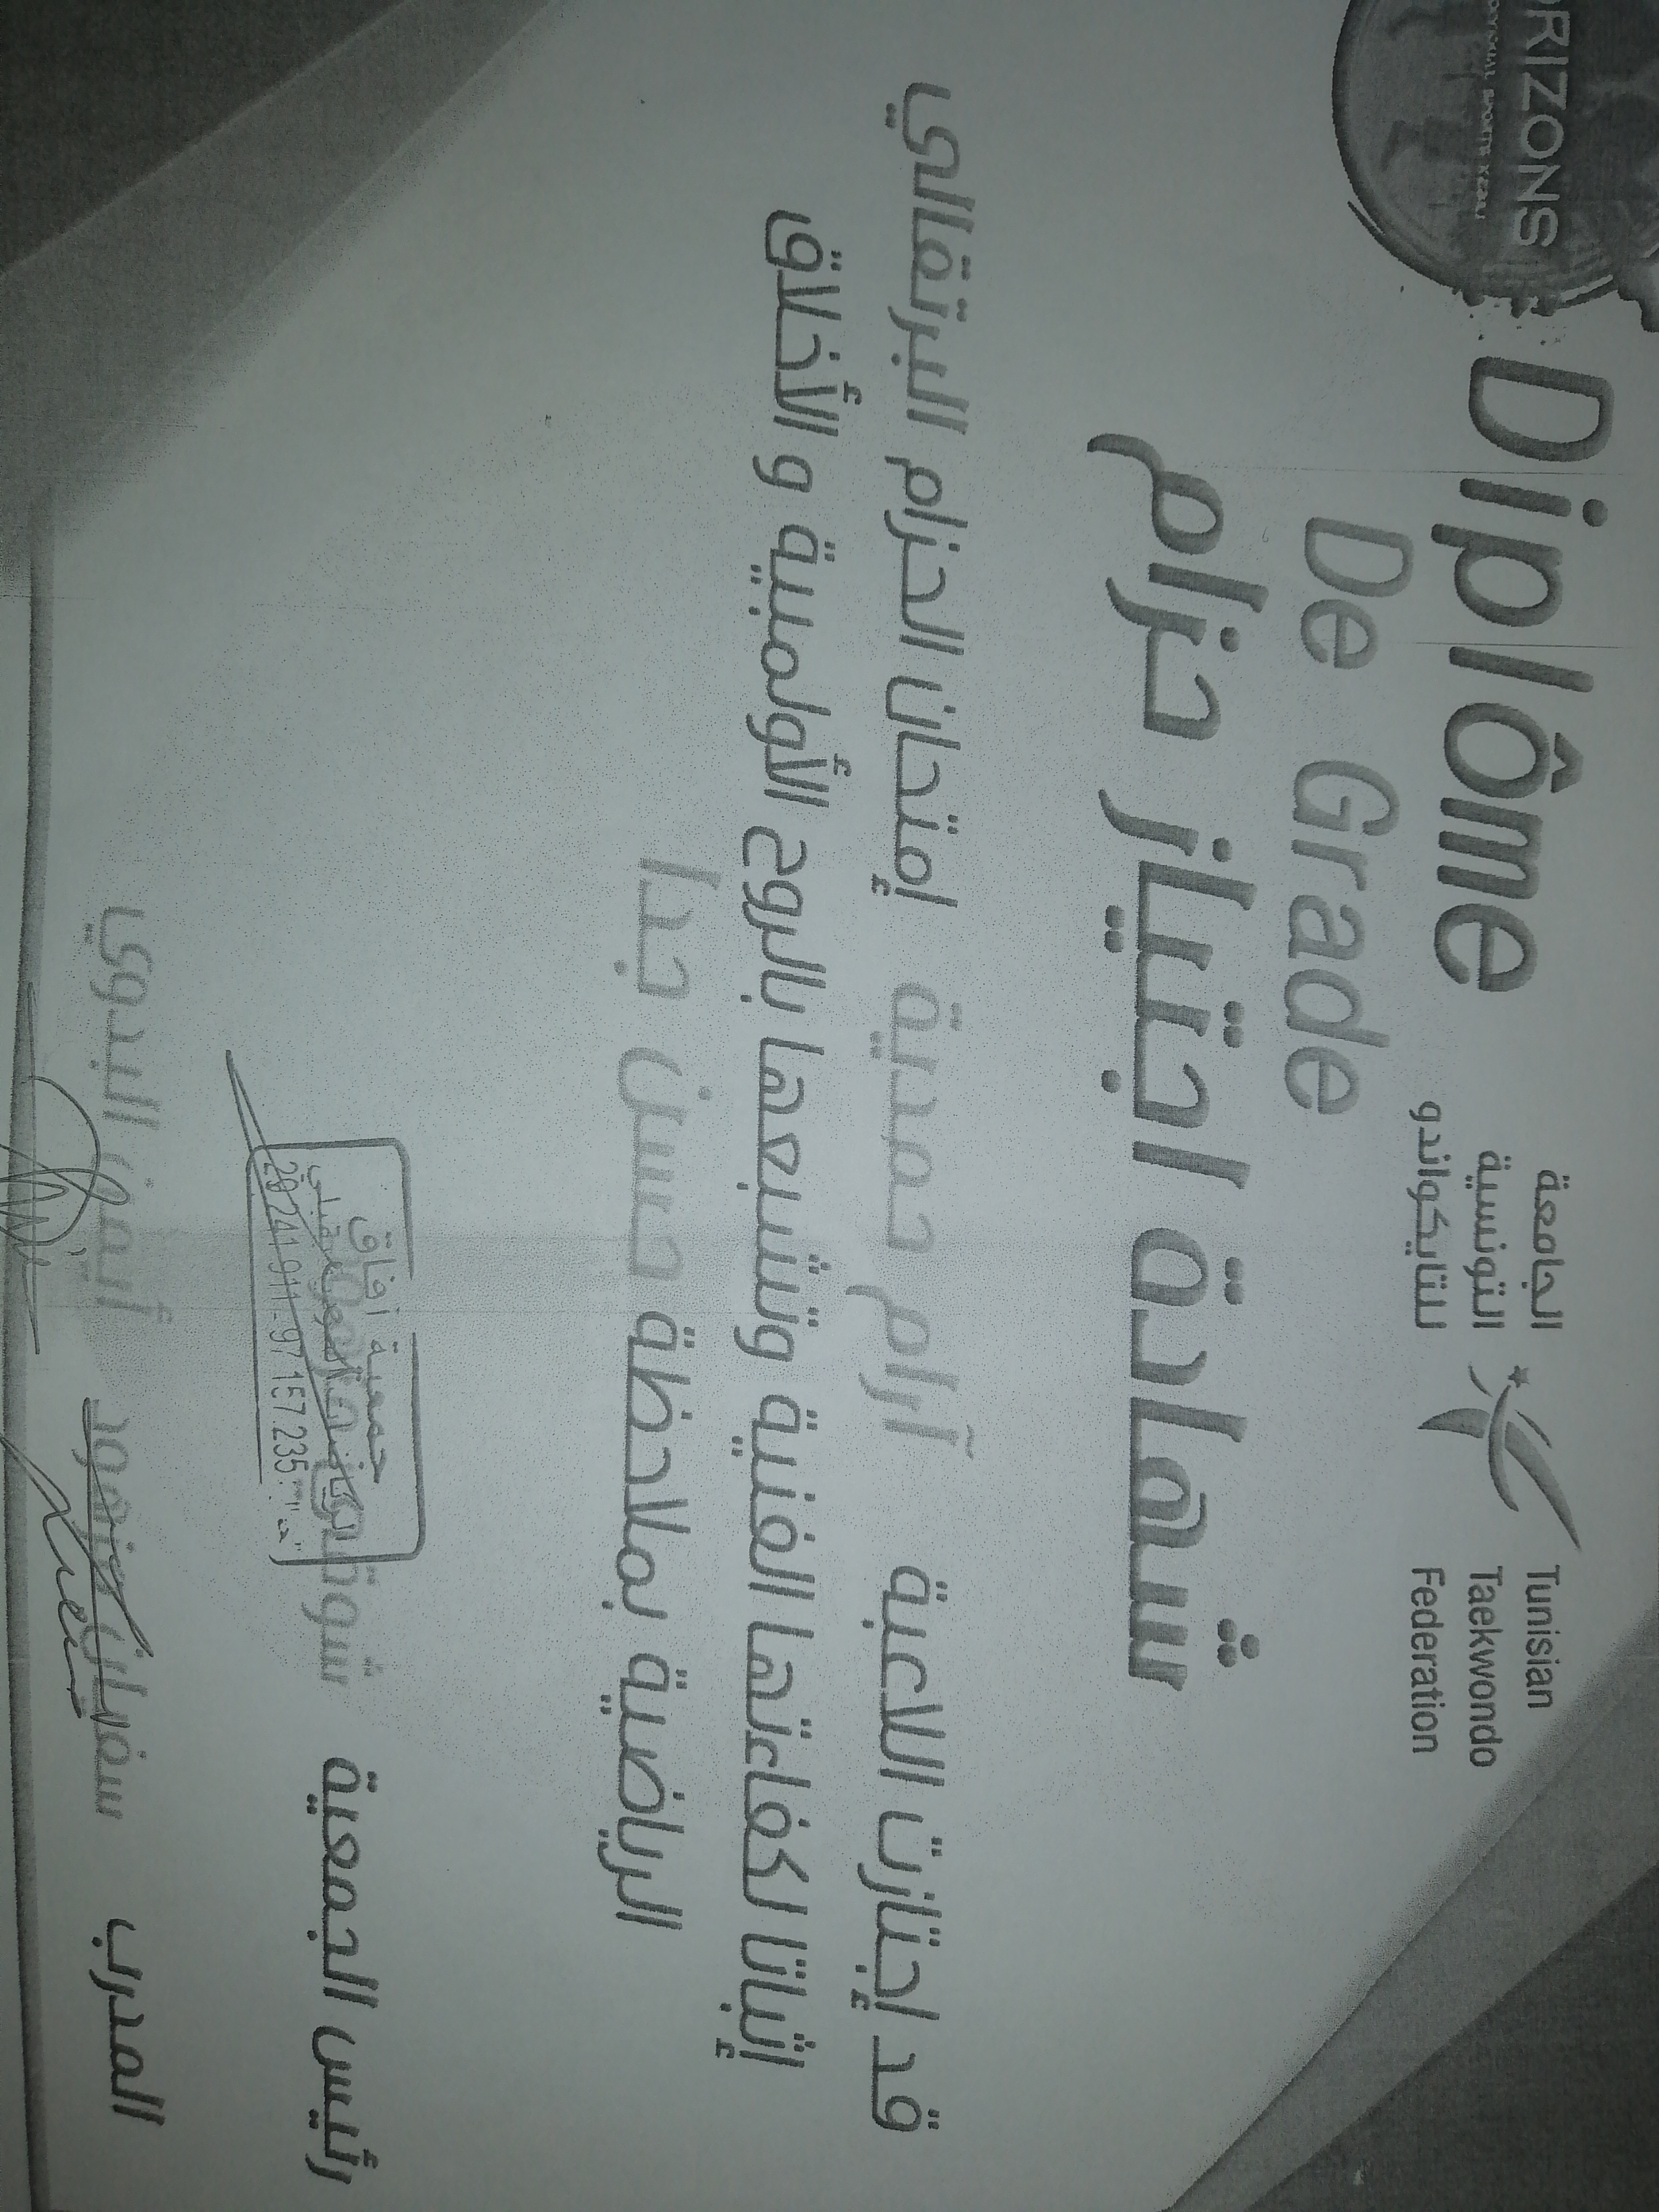 RIZONS
Diplôme
De Grade
الجامعة
التونسية
للتايكواندو
Tunisian
Taekwondo
Federation
شهادة اجتياز حزام
قد إجتازت اللاعبة آرام حمدية إمتحان الحزام البرتقالي
إثباتا لكفاءتها الفنية وتشبعها بالروح الأولمبية و الأخلاق
الرياضية بملاحظة حسن جدا
رئيس الجمعية شوقي
جمعية آفاق
29 241 911 - 97 157 235
المدرب سفيان أيمن البدوي